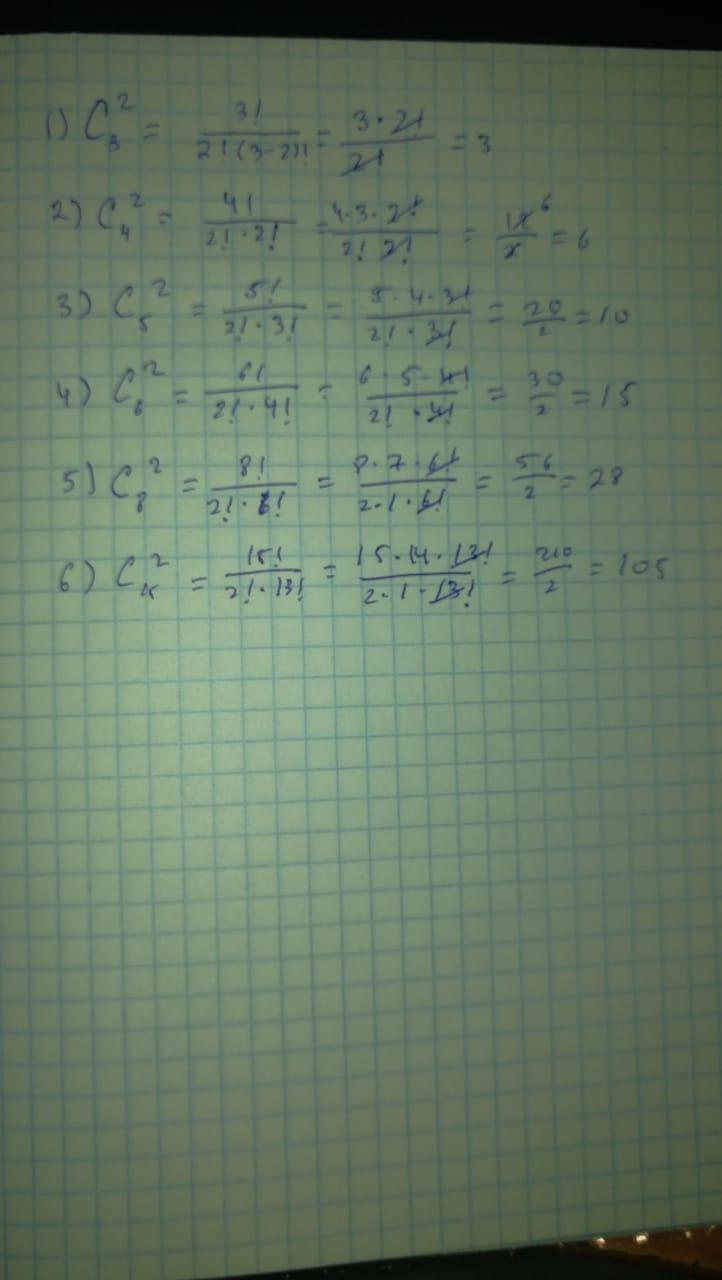 1) C₃² = 3!/2!(3-2)! = 3·2!/2! = 3
2) C₄² = 4!/2!·2! = 4·3·2!/2! 2! = 12/2 6 = 6
3) C₅² = 5!/2!·3! = 5·4·3!/2!·3! = 20/2 = 10
4) C₆² = 6!/2!·4! = 6·5·4!/2!·4! = 30/2 = 15
5) C₈² = 8!/2!·6! = 8·7·6!/2·1·6! = 56/2 = 28
6) C₁₅² = 15!/2!·13! = 15·14·13!/2·1·13! = 210/2 = 105